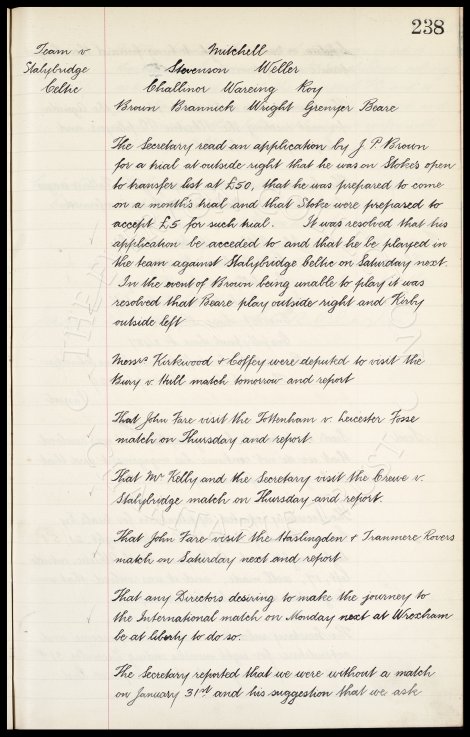 238
Team v Mitchell
Stalybridge Stevenson Weller
Celtic Challinor Wareing Roy
Brown Brannick Wright Grenyer Beare
The Secretary read an application by J. P Brown
for a trial at outside right that he was on Stoke's open
to transfer list at £50, that he was prepared to come
on a month's trial and that Stoke were prepared to
accept £5 for such trial. It was resolved that his
application be acceded to and that he be played in
the team against Stalybridge Celtic on Saturday next.
In the event of Brown being unable to play it was
resolved that Beare play outside right and Kirby
outside left
Messrs Kirkwood & Coffey were deputed to visit the
Bury v. Hull match tomorrow and report
That John Fare visit the Tottenham v. Leicester Fosse
match on Thursday and report
That Mr Kelly and the Secretary visit the Crewe v.
Stalybridge match on Thursday and report.
That John Fare visit the Haslingden & Tranmere Rovers
match on Saturday next and report
That any Directors desiring to make the journey to
the International match on Monday next at Wrexham
be at liberty to do so.
The Secretary reported that we were without a match
on January 31st and his suggestion that we ask